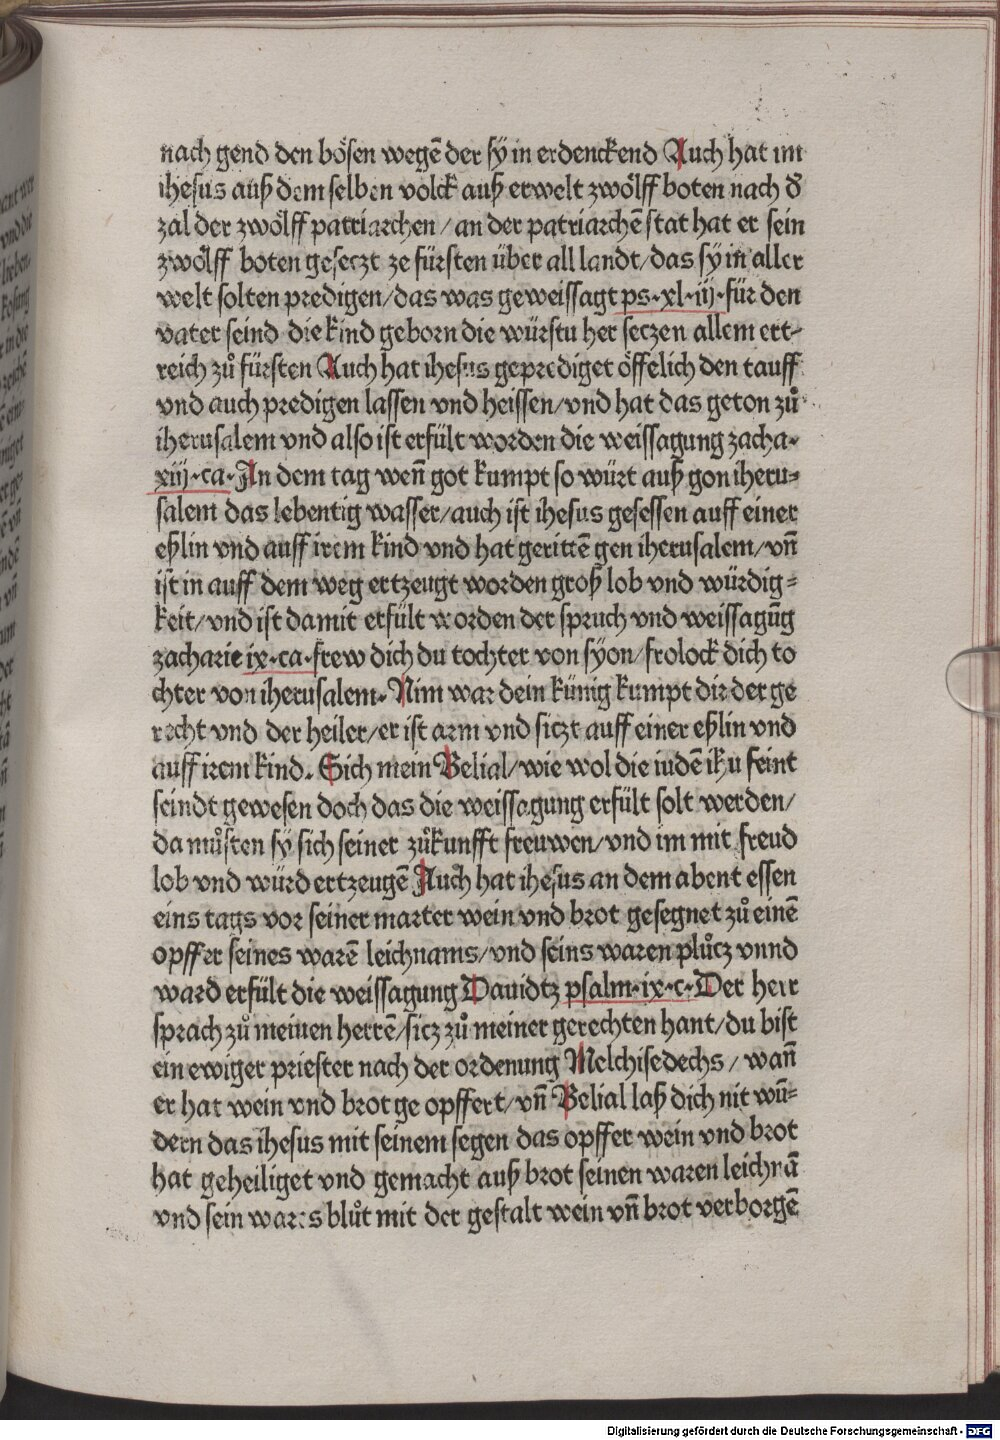 nach gend den bösen wegē der sy in erdenckend Auch hat im
ihesus auß dem selben volck auß erwelt zwölff boten nach d̕
zal der zwölff patriarchen/an der patriarchē stat hat er sein
zwölff boten geseczt ze fürsten über all landt/das sy in aller
welt solten predigen/das was geweissagt ps·xl·iij·für den
vater seind die kind geborn die würstu her seczen allem ert-
reich zů fürsten Auch hat ihesus geprediget öffelich den tauff
vnd auch predigen lassen vnd heissen/vnd hat das geton zů
iherusalem vnd also ist erfült worden die weissagung zacha·
xiij·ca·In dem tag wen̄ got kumpt so würt auß gon iheru-
salem das lebentig wasser/auch ist ihesus gesessen auff einer
eßlin vnd auff irem kind vnd hat gerittē gen iherusalem/vn̄
ist in auff dem weg ertzeugt worden groß lob vnd würdig-
keit/vnd ist damit erfült worden der spruch vnd weissagūg
zacharie ix·ca·frew dich du tochter von syon/frolock dich to
chter von iherusalem·Nim war dein künig kumpt dir der ge
recht vnd der heiler/er ist arm vnd siczt auff einer eßlin vnd
auff irem kind. Sich mein Belial/wie wol die iudē ihu feint
seindt gewesen doch das die weissagung erfült solt werden/
da můsten sy sich seiner zůkunfft freuwen/vnd im mit freud
lob vnd würd ertzeugē Auch hat ihesus an dem abent essen
eins tags vor seiner marter wein vnd brot gesegnet zů einē
opffer seines warē leichnams/vnd seins waren plůcz vnnd
ward erfült die weissagung Dauidtz psalm·ix·c·Der herr
sprach zů meinen herrē/sicz zů meiner gerechten hant/du bist
ein ewiger priester nach der ordenung Melchisedechs/wan̄
er hat wein vnd brot ge opffert/vn̄ Belial laß dich nit wū-
dern das ihesus mit seinem segen das opffer wein vnd brot
hat geheiliget vnd gemacht auß brot seinen waren leichnā
vnd sein wares blůt mit der gestalt wein vn̄ brot verborgē
Digitalisierung gefördert durch die Deutsche Forschungsgemeinschaft - DFG